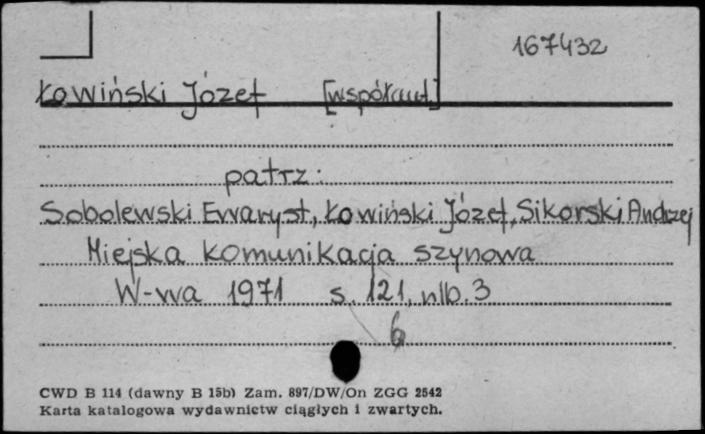 167432
Łowiński Józef [współaut.]
patrz:
Sobolewski Ewaryst, Łowiński Józef, Sikorski Andrzej
Miejska komunikacja szynowa
W-wa 1971 s. 121, nlb. 3
6
CWD B 114 (dawny B 15b) Zam. 897/DW/On ZGG 2542
Karta katalogowa wydawnictw ciągłych i zwartych.